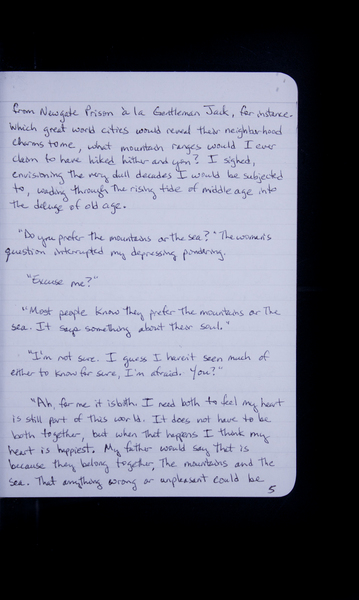 from Newgate Prison à la Gentleman Jack, for instance.
Which great world cities would reveal their neighborhood
charms to me, what mountain ranges would I ever
claim to have hiked hither and yon? I sighed,
envisioning the very dull decades I would be subjected
to, wading through the rising tide of middle age into
the deluge of old age.
"Do you prefer the mountains or the sea?" The woman's
question interrupted my depressing pondering.
"Excuse me?"
"Most people know they prefer the mountains or the
sea. It says something about their soul."
"I'm not sure. I guess I haven't seen much of
either to know for sure, I'm afraid. You?"
"Ah, for me it is both. I need both to feel my heart
is still part of this world. It does not have to be
both together, but when that happens I think my
heart is happiest. My father would say that is
because they belong together, the mountains and the
sea. That anything wrong or unpleasant could be
5